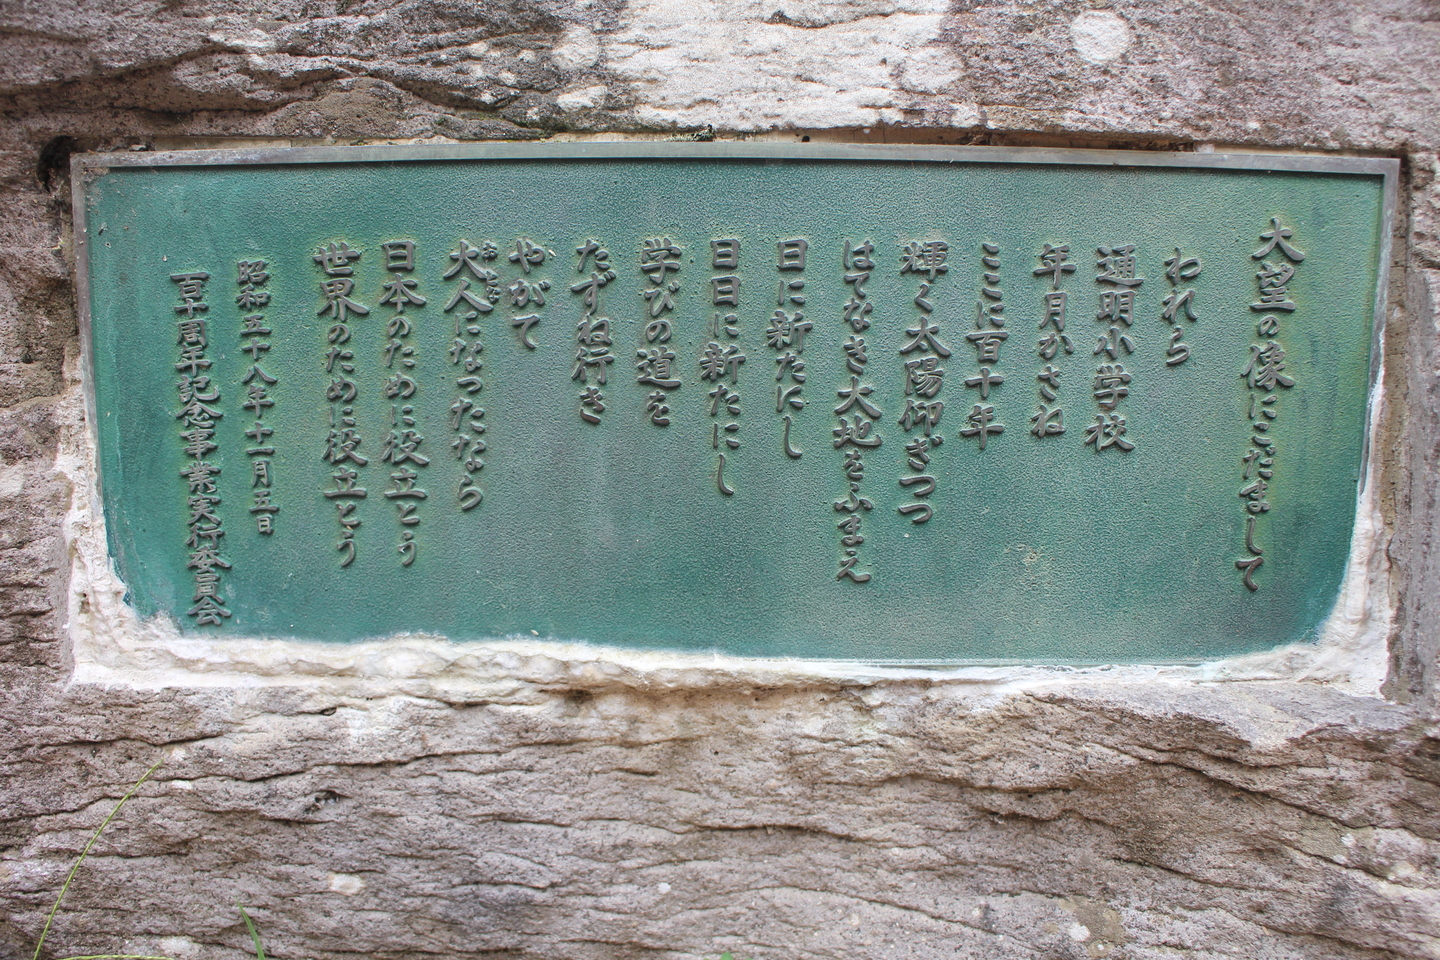 大望の像にこだまして
われら
通明小学校
年月かさね
ここに百十年
輝く太陽仰ぎつつ
はてなき大地をふまえ
日に新たにし
日日に新たにし
学びの道を
たずね行き
やがて
おとな
大人になったなら
日本のために役立とう
世界のために役立とう
昭和五十八年十一月五日
百十周年記念事業実行委員会